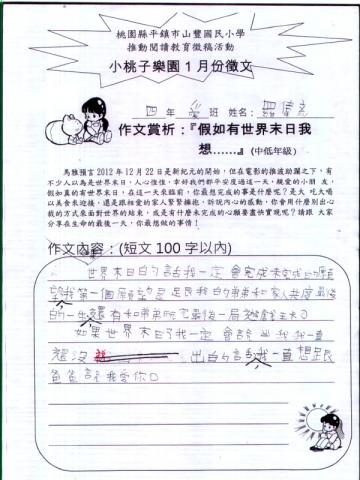 桃園縣平鎮市山豐國民小學
推動閱讀教育徵稿活動
小桃子樂園1月份徵文
四年愛班 姓名：羅偉
作文賞析：『假如有世界末日我
想……』(中低年級)
馬雅預言2012年12月22日是新紀元的開始，但在電影的推波助瀾之下，有
不少人以為是世界末日，人心惶惶，幸好我們都平安度過這一天，親愛的小朋 友，
假如真的有世界末日，在這一天來臨前，你最想完成的事是什麼呢？是大 吃大喝
以美食來迎接，還是跟相愛的家人緊緊擁抱，訴說內心的感動，你會用什麼別出心裁
的方式來面對世界的結束，或是有什麼未完成的心願要盡快實現呢？請跟 大家
分享在生命的最後一天，你最想做的事情！
作文內容：(短文100字以內)
世界末日的話我一定會完成未完成的願
望我第一個願望是 跟我的弟弟和家人共度最後
的一生還有和弟弟玩最後一局遊戲王大日
如果世界末日了我一定會說出我我一直
還沒 出的話我一直想跟
爸爸說我愛你口